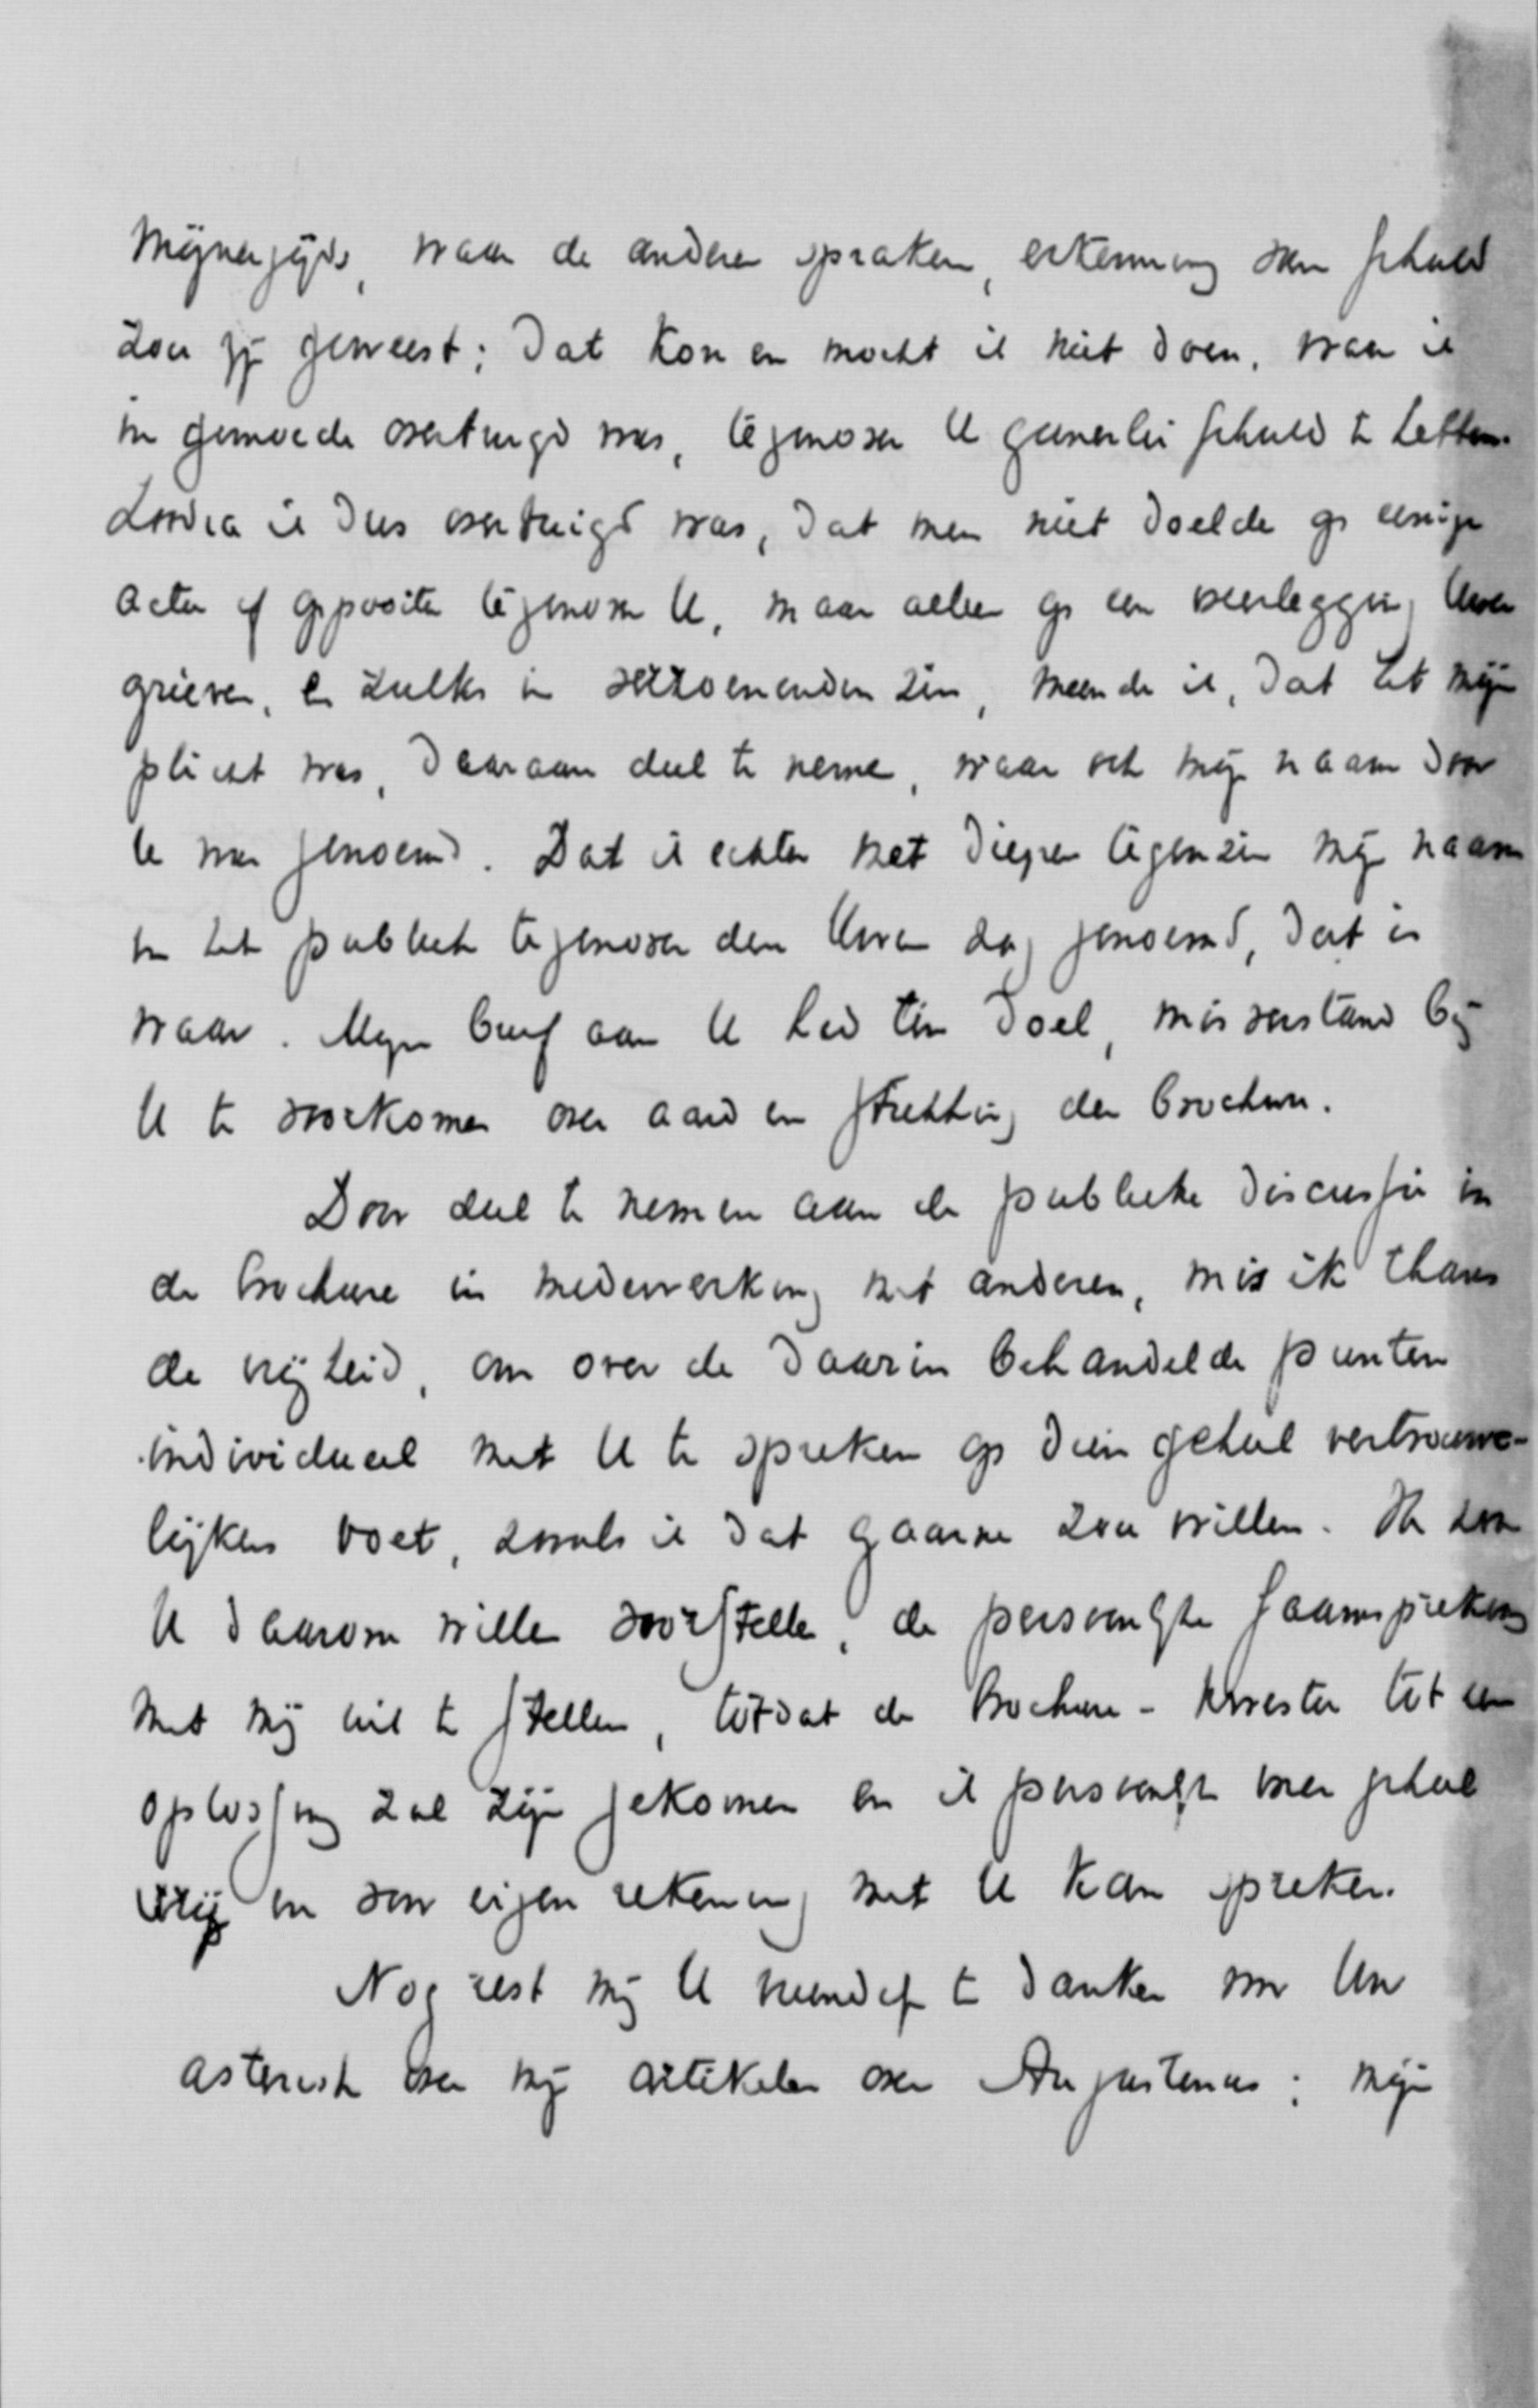 mijnerzijds, waar de anderen spraken, erkenning van schuld
zou zijn geweest; dat kon en mocht ik niet doen, waar ik
in gemoede overtuigd was, tegenover U geenerlei schuld te hebben.
Zoodra ik dus overtuigd was, dat men niet doelde op eenige
actie of oppositie tegenover U, maar alleen op een weerlegging Uwer
grieven, en zulks in verzoenenden zin, meende ik, dat het mijn
plicht was, daaraan deel te nemen, waar ook mijn naam door
U was genoemd. Dat ik echter met diepen tegenzin mijn naam
in het publiek tegenover den Uwen zag genoemd, dat is
waar. Mijn brief aan U had ten doel, misverstand bij
U te voorkomen over aard en strekking der brochure.
Door deel te nemen aan de publieke discussie in
de brochure in medewerking met anderen, mis ik thans
de vrijheid, om over de daarin behandelde punten
individueel met U te spreken op dien geheel vertrouwe-
lijken voet, zooals ik dat gaarne zou willen. Ik zou
U daarom willen voorstellen, de persoonlijke saamspreking
met mij uit te stellen, totdat de brochure-kwestie tot een
oplossing zal zijn gekomen en ik persoonlijk weer geheel
vrij en voor eigen rekening met U kan spreken.
Nog rest mij U vriendelijk te danken voor Uw
asterisk over mijn artikelen over Augustinus; mijn